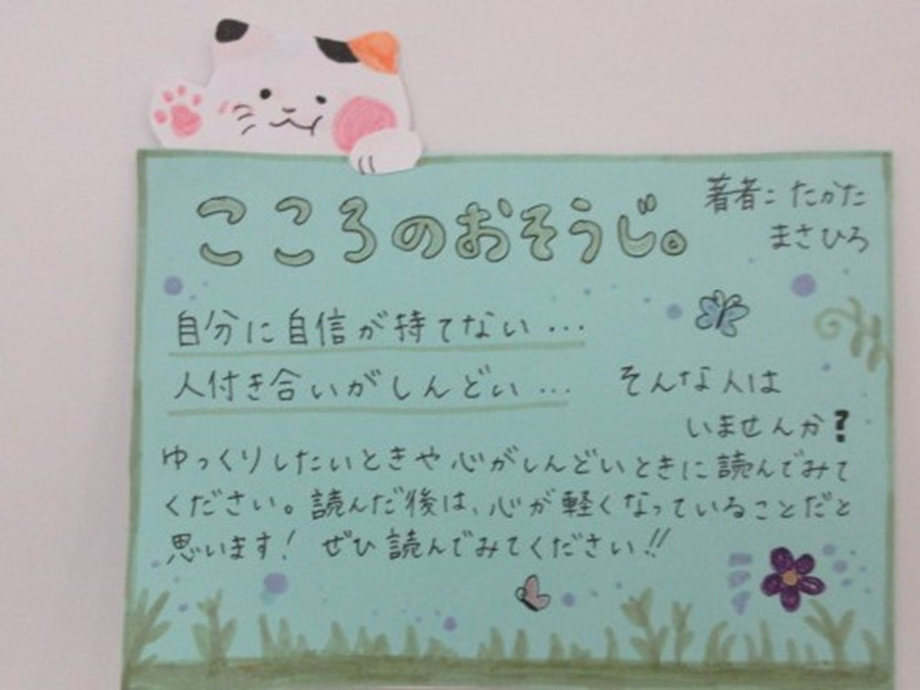 こころのおそうじ。
著者：たかた
まさひろ
自分に自信が持てない…
人付き合いがしんどい…
そんな人は
いませんか？
ゆっくりしたいときや心がしんどいときに読んでみて
ください。読んだ後は、心が軽くなっていることだと
思います！ ぜひ読んでみてください!!